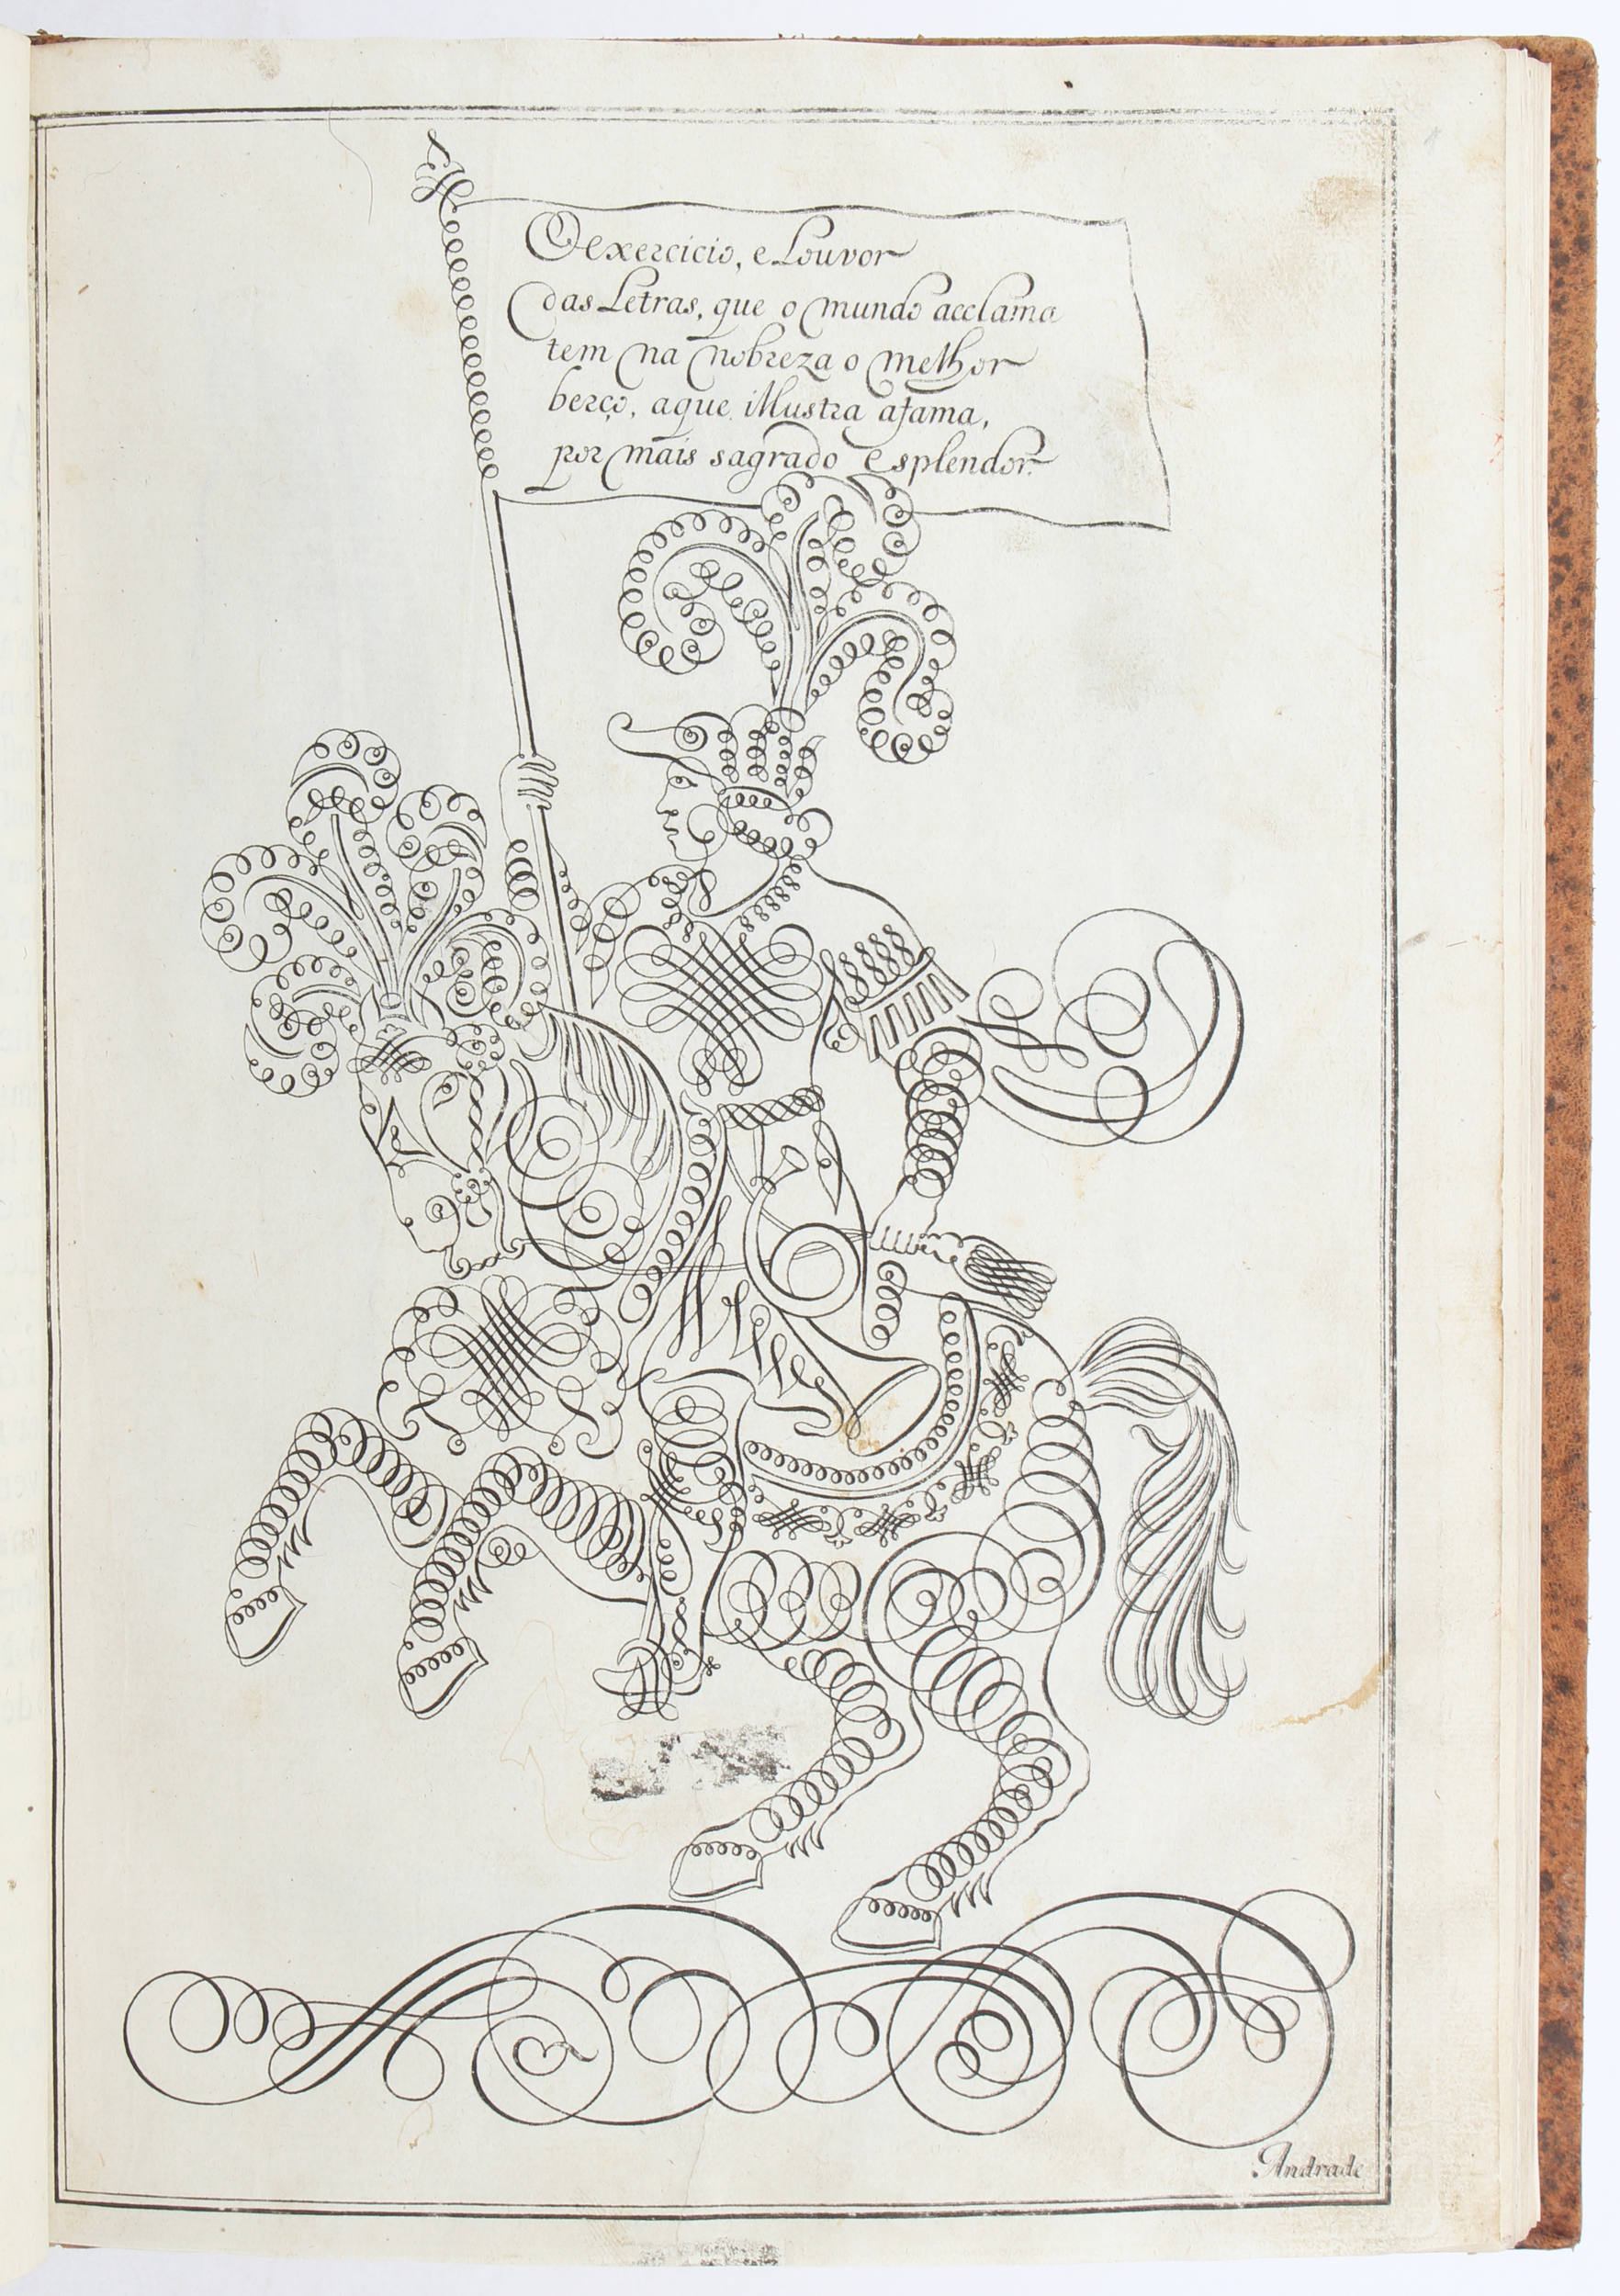 O exercicio, e Louvor
das Letras, que o mundo acclama
tem na nobreza o melhor
berço, aque illustra afama,
por mais sagrado esplendor.
Andrade